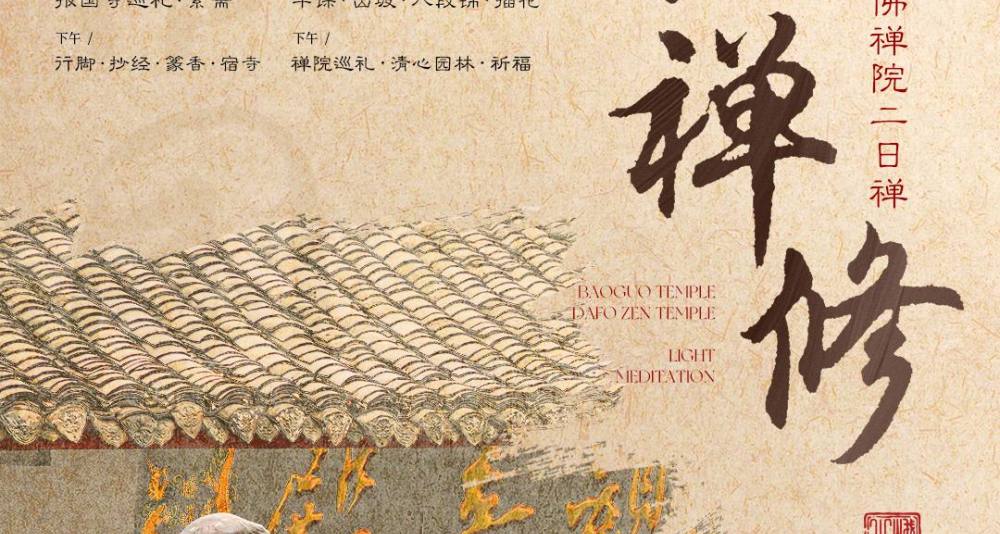 报国寺巡礼·素斋
下午 /
行脚·抄经·篆香·宿寺
早课·过堂·八段锦·插花
下午 /
禅院巡礼·清心园林·祈福
禅修
佛禅院二日禅
BAOGUO TEMPLE
DAFO ZEN TEMPLE
LIGHT
MEDITATION